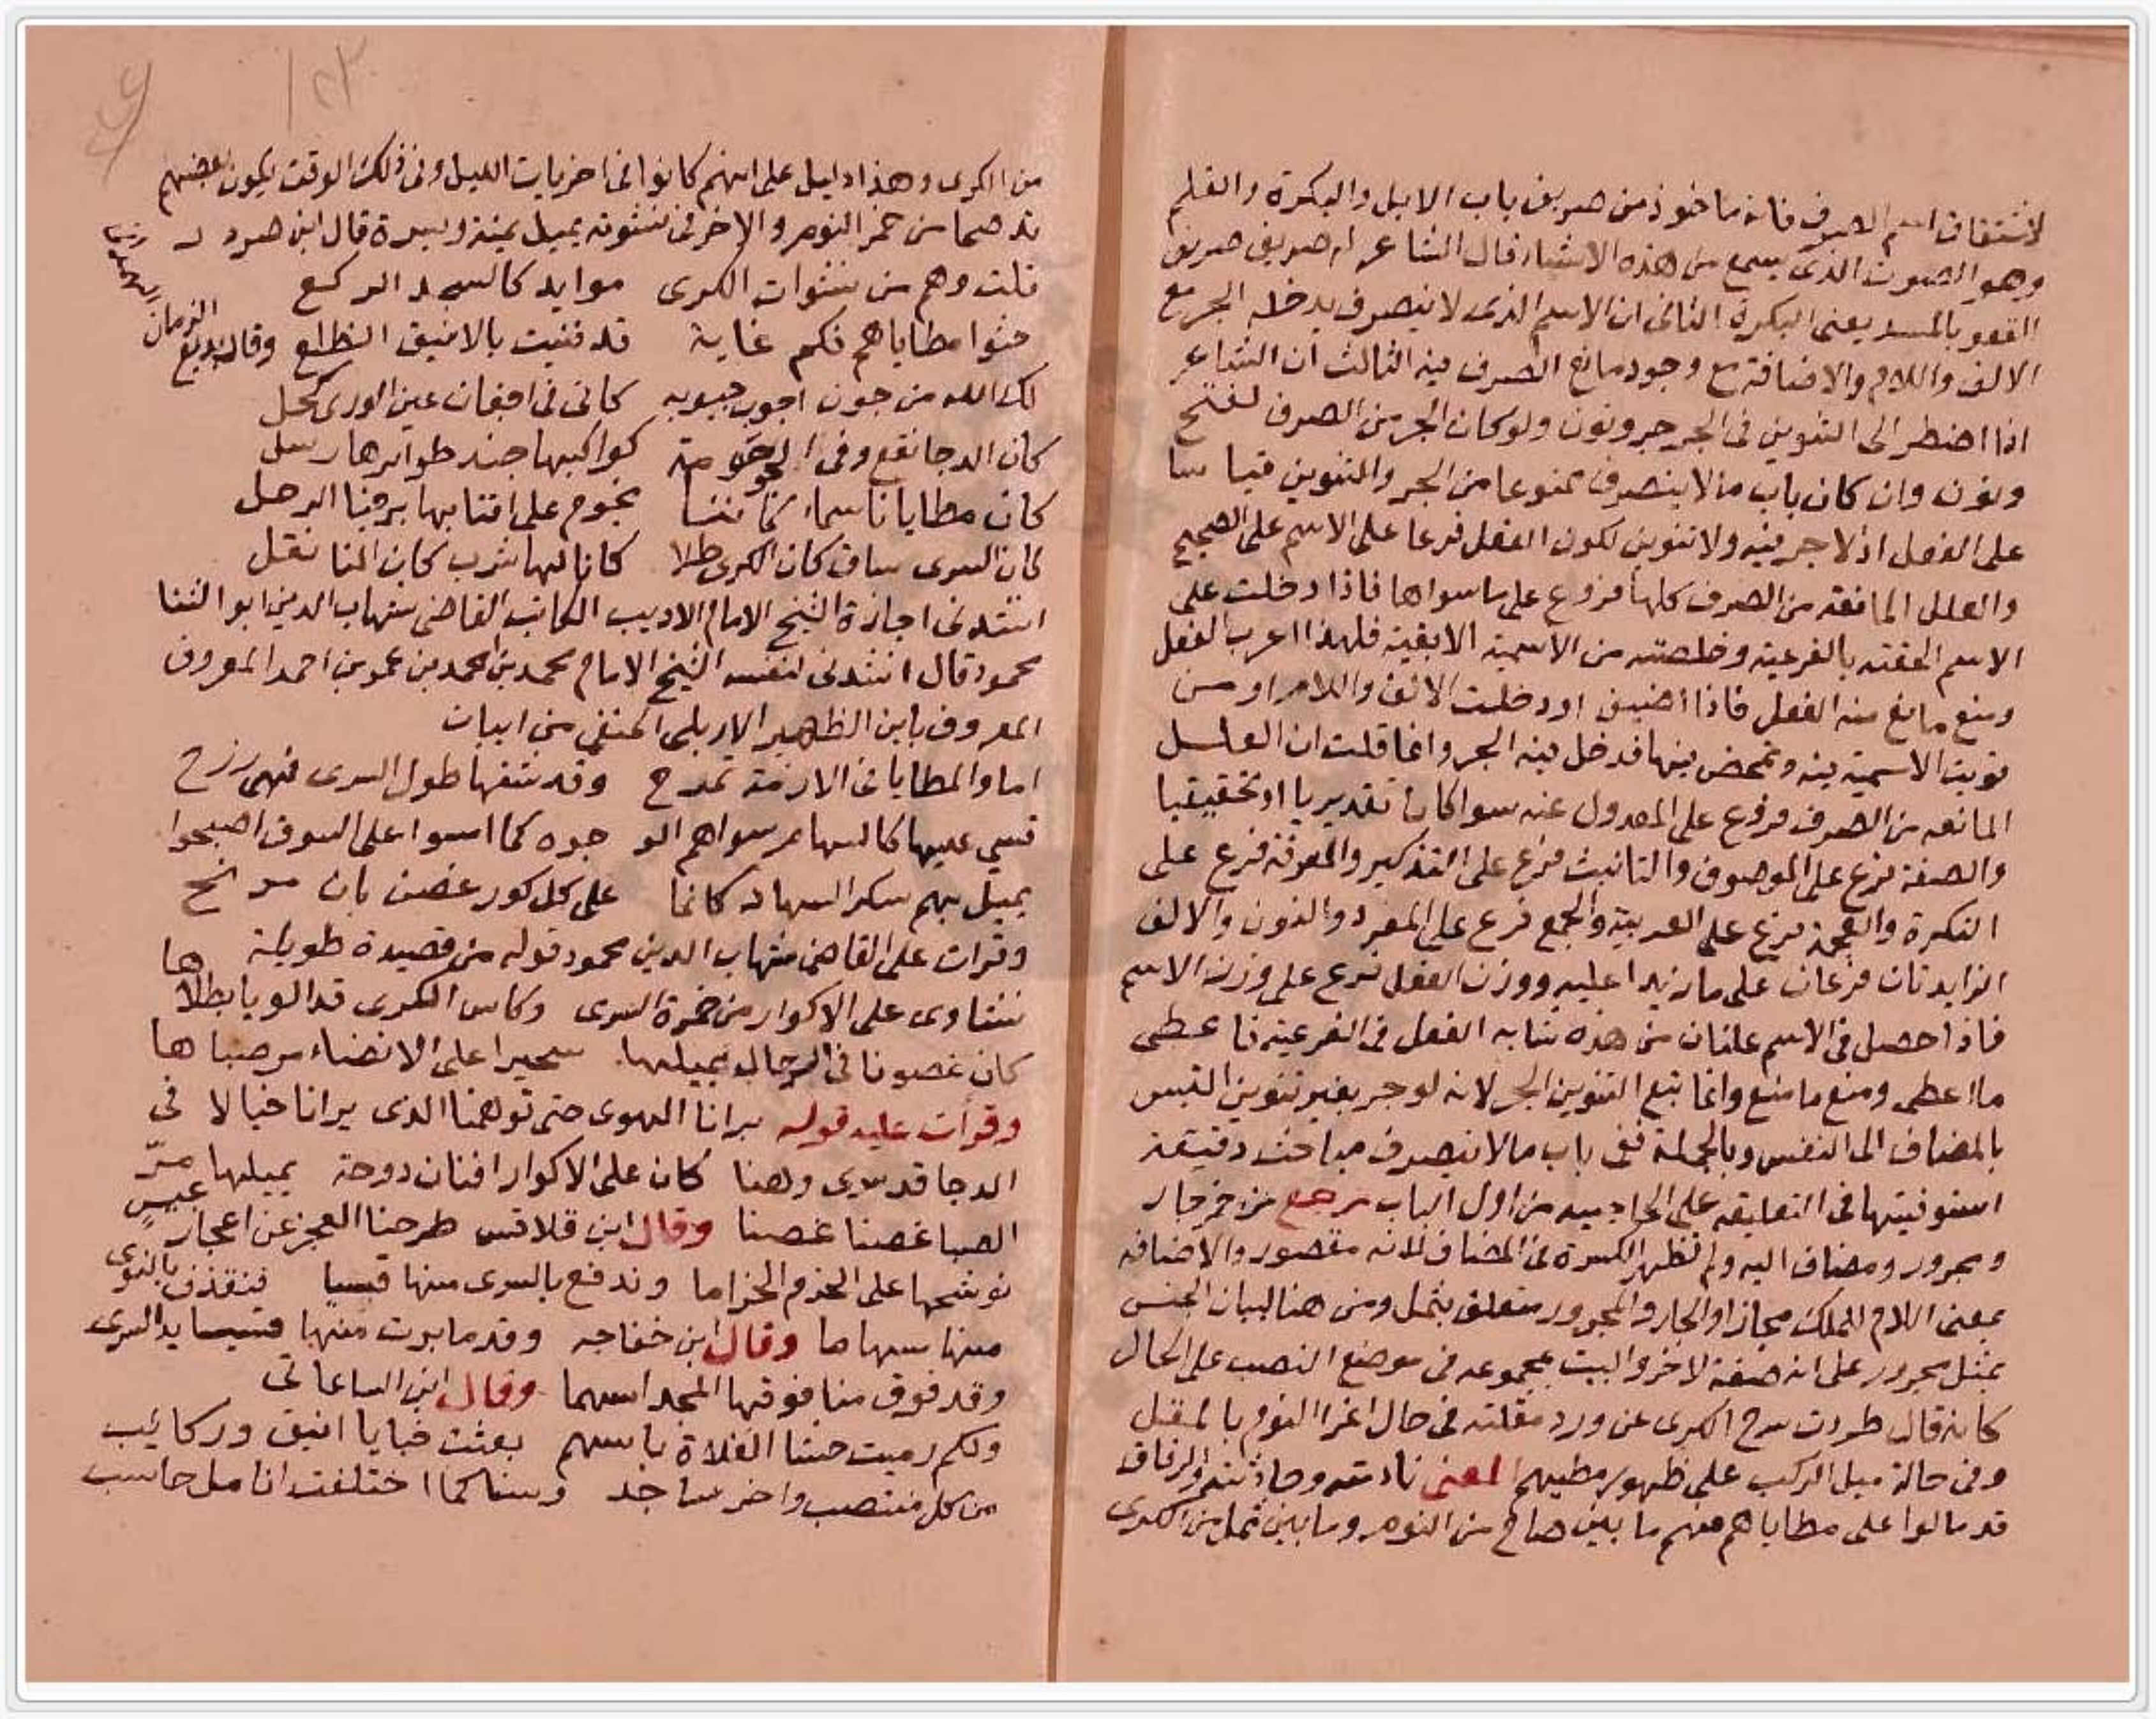 لاشتقاق اسم الصرف فانه ماخوذ من صريف باب الابل والبكرة والقلم
وهو الصوت الذى يسمع من هذه الاشياء قال الشاعر له صريف صريف
القعو بالمسد يعنى البكرة الثانى ان الاسم الذى لا ينصرف يدخله الجر مع
الالف واللام والاضافة مع وجود مانع الصرف فيه الثالث ان الشاعر
اذا اضطر الى التنوين فى الجر جر ونون ولو كان الجر من الصرف لفتح
ونون وان كان باب ما لا ينصرف ممنوعا من الجر والتنوين قياسا
على الفعل اذ لا جر فيه ولا تنوين لكون الفعل فرعا على الاسم على الصحيح
والعلل المانعه من الصرف كلها فروع على ما سواها فاذا دخلت على
الاسم الحقته بالفرعية وخلصته من الاسمية الابقية فلهذا اعرب الفعل
ومنع ما منع منه الفعل فاذا اضيف او دخلت الالف واللام او من
قويت الاسمية فيه وتمحض فيها فدخل فيه الجر وانما قلت ان العلل
المانعه من الصرف فروع على المعدول عنه سوا كان تقديريا او تحقيقيا
والصفة فرع على الموصوف والتانيث فرع على التذكير والمعرفة فرع على
النكرة والعجمة فرع على العربية والجمع فرع على المفرد والنون والالف
الزايدتان فرعان على ما زيدا عليه ووزن الفعل فرع على وزن الاسم
فاذا حصل فى الاسم علتان من هذه شابه الفعل فى الفرعية فاعطى
ما اعطى ومنع ما منع وانما تبع التنوين الجر لانه لو جر بغير تنوين التبس
بالمضاف الى النفس وبالجملة ففى باب ما لا ينصرف مباحث دقيقة
استوفيتها فى التعليقه على الحاجبيه من اول الباب رجع من خمر جار
ومجرور ومضاف اليه ولم تظهر الكسرة فى المضاف لانه مقصور والاضافه
بمعنى اللام للملك مجازا والجار والمجرور متعلق بثمل ومن هنا لبيان الجنس
بثمل مجرور على انه صفة لاخر والبيت بمجموعه فى موضع النصب على الحال
كانه قال طردت سرح الكرى عن ورد مقلته فى حال اغرا النوم بالمقل
وفى حالة ميل الركب على ظهور مطيهم المعنى نادمته وحادثته والرفاق
قد مالوا على مطاياهم فهم ما بين صاح من النوم وما بين ثمل من الكرى
من الكرى وهذا دليل على انهم كانوا فى اخريات الليل وفى ذلك الوقت يكون بعضهم
قد صحا من خمر النوم والاخر فى نشوته يميل يمنة ويسرة قال ابن
قلت وهم من نشوات الكرى موايد كالسجد الركع
حثوا مطاياهم فكم غاية قد فنيت بالانيق الظلع وقال بديع
الزمان
الهمذانى
لك الله من جون اجوب جيوبه كانى فى اجفان عين الورى كحل
كان الدجا نقع وفى الجو حومة كواكبها جند طوايرها رسل
كان مطايانا سماء كاننا نجوم على اقتابها برجنا الرحل
كان السرى ساق كان الكرى طلا كانا لها شرب كان المنا نقل
انشدنى اجازة الشيخ الامام الاديب الكاتب القاضى شهاب الدين ابو الثنا
محمود قال انشدنى لنفسه الشيخ الامام محمد بن محمد بن عمر بن احمد المعروف
المعروف بابن الظهير الاربلى الحنفى من ابيات
اما والمطايا فى الازمة تمرح وقد شفها طول السرى فهى رزح
قسى عليها كالسهام سواهم الو جوه كما امسوا على السوق اصبحوا
يميل بهم سكر السهاد كانما على كل كور غصن بان مرنح
وقرات على القاضى شهاب الدين محمود قوله من قصيدة طويلة
نشاوى على الاكوار من خمرة السرى وكاس الكرى قد الويا بطلاها
كان غصونا فى الرحال يميلها سحيرا على الانضاء مر صباها
وقرأت عليه قوله برانا الهوى حتى توهمنا الذى يرانا خيالا فى
الدجا قد سرى وهنا كان على الاكوار افنان دوحة يميلها مرّ
الصبا غصنا غصنا وقال ابن قلاقس طرحنا العجز عن اعجاز عيس
نوشحها على الحزم الحزاما وندفع بالسرى منها قسيا فنقذف بالنوى
منها سهاما وقال ابن خفاجه وقد مابرت منها قسيا يد السرى
وقد فوق منا فوقها المجد اسهما وقال ابن الساعاتى
ولكم رميت حشا الفلاة باسهم بعثت حنايا انيق وركايب
من كل منتصب واخر ساجد وسنا كما اختلفت انامل حاسب